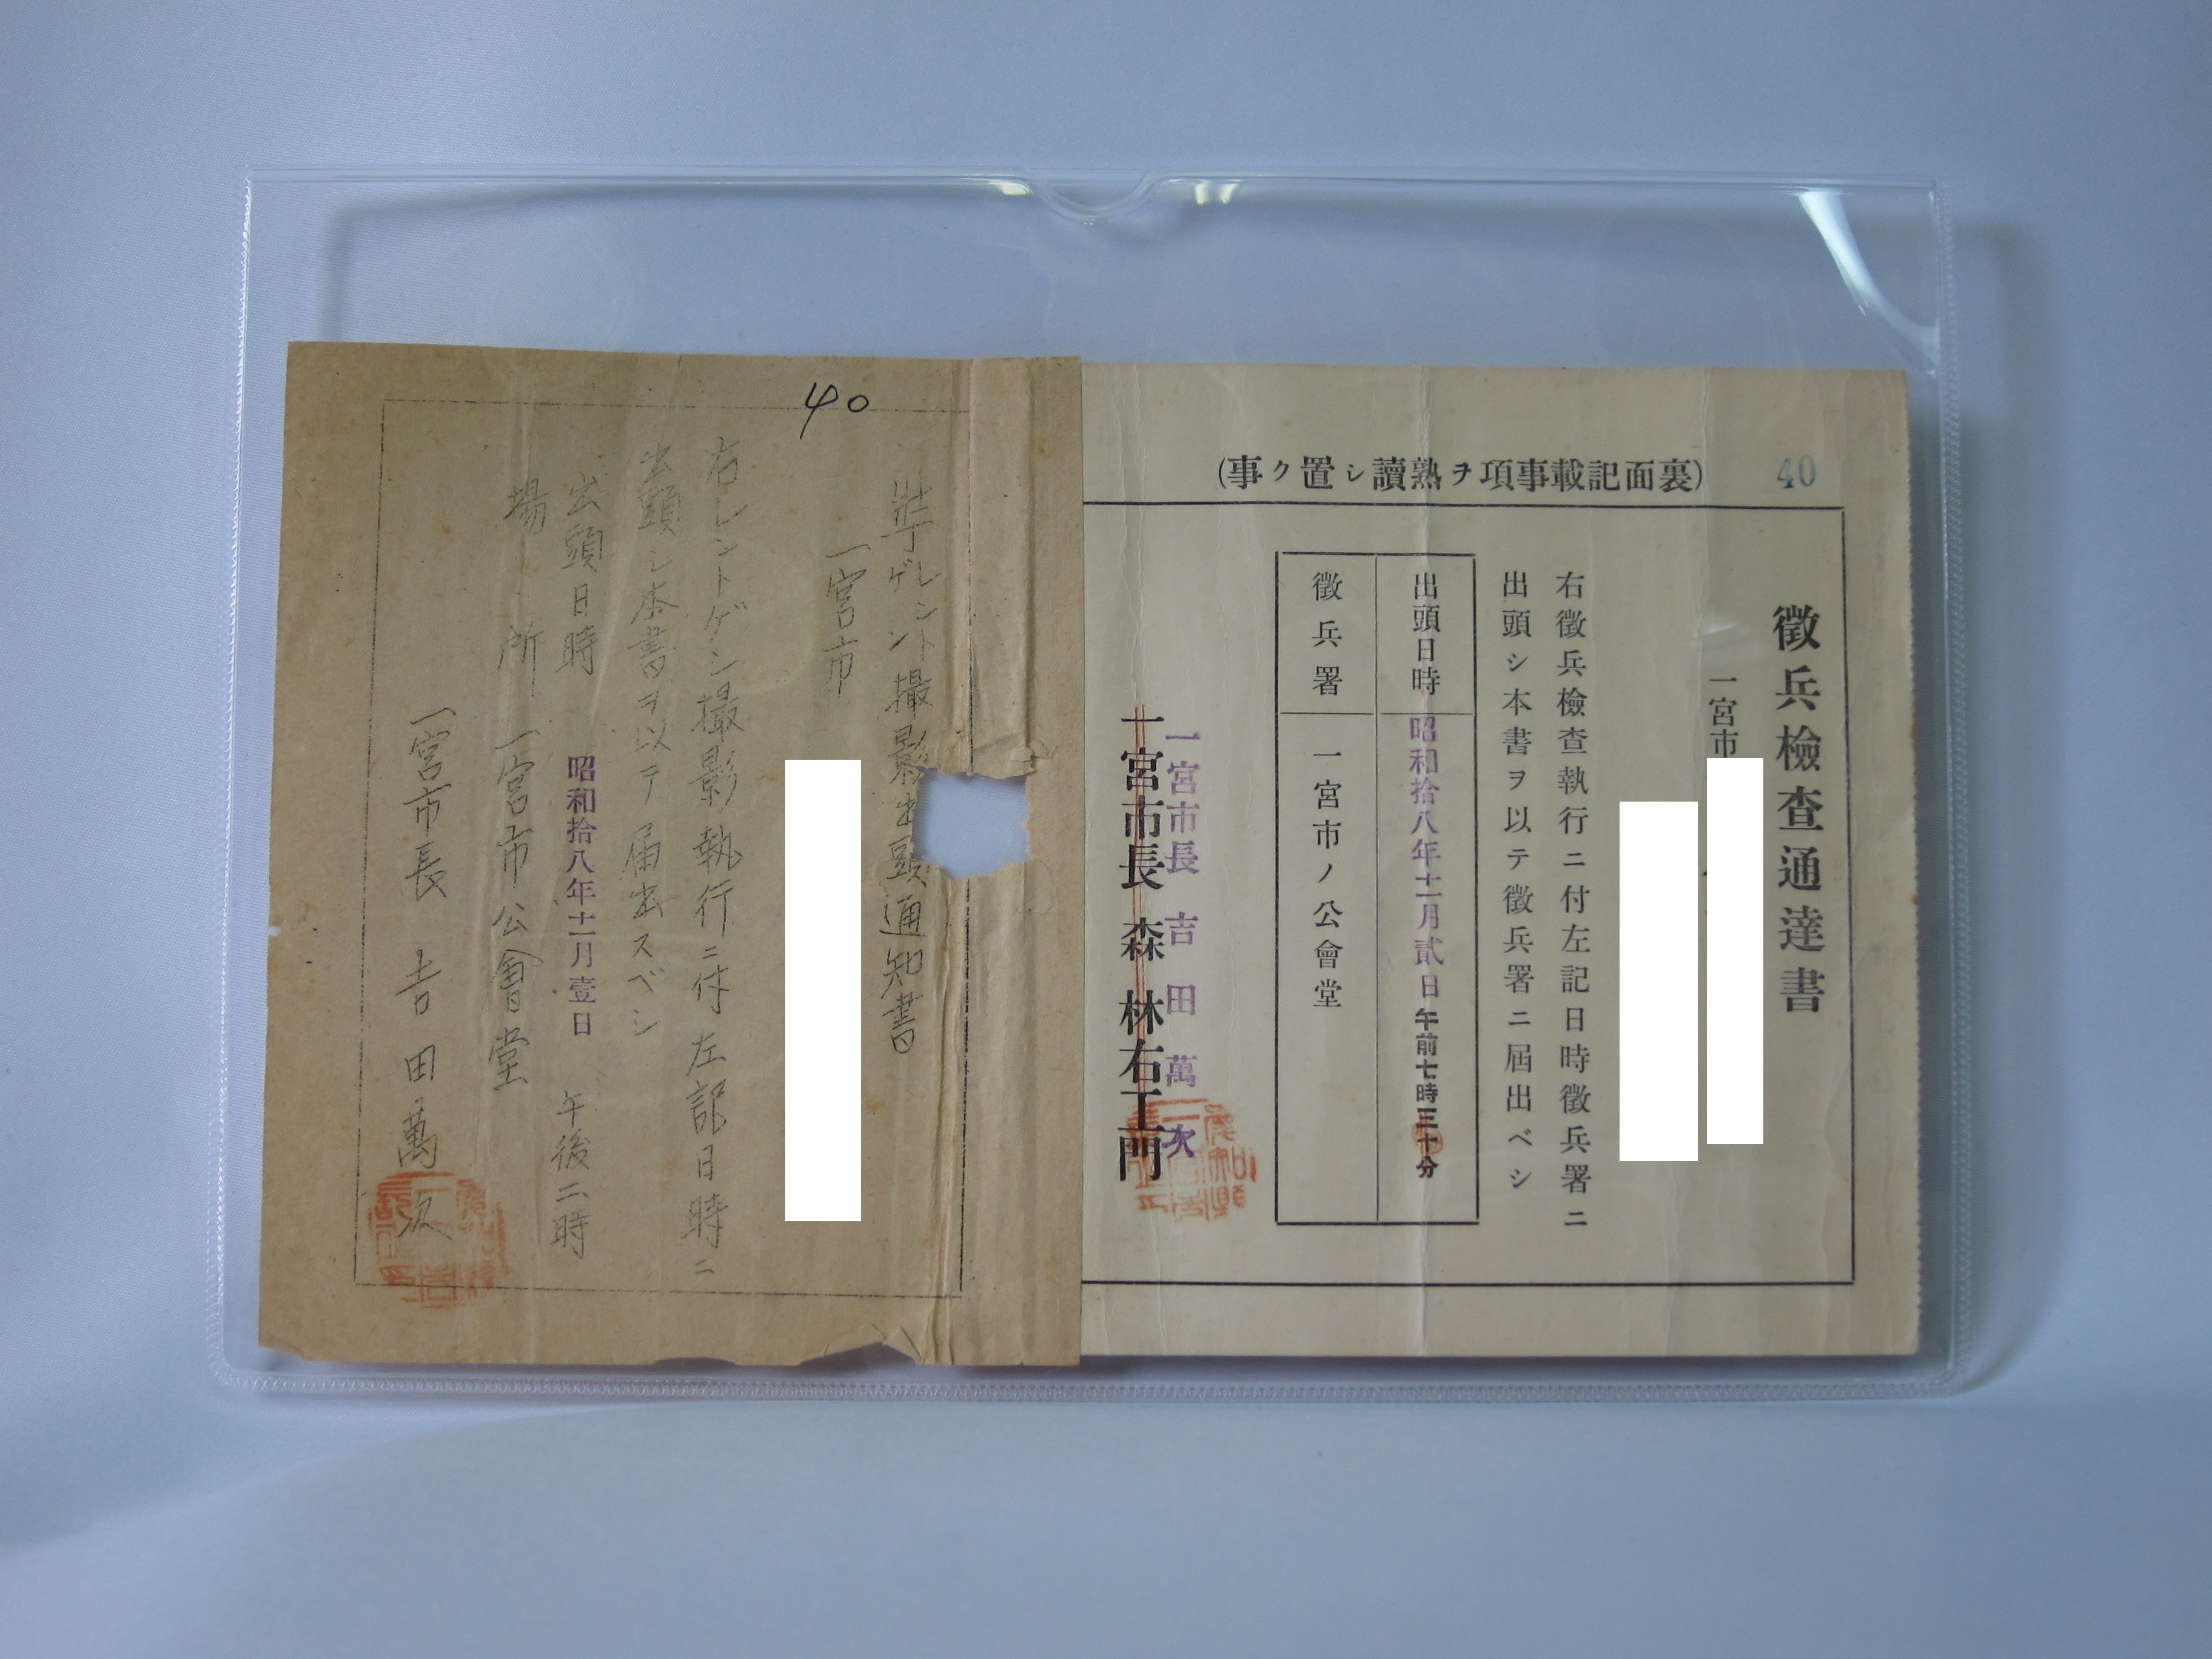 40
(裏面記載事項ヲ熟讀シ置ク事)
徵兵檢查通達書
一宮市
右徵兵檢查執行ニ付左記日時徵兵署ニ
出頭シ本書ヲ以テ徵兵署ニ屆出ベシ
出頭日時 昭和拾八年十二月貳日午前七時三十分
徵兵署 一宮市ノ公會堂
一宮市長 吉田萬次
一宮市長 森 林右エ門
40
壯丁レントゲン撮影出頭通知書
一宮市
右レントゲン撮影執行ニ付左記日時ニ
出頭シ本書ヲ以テ届出スベシ
出頭日時 昭和拾八年十二月壹日 午後二時
場所 一宮市公會堂
一宮市長 吉田萬次